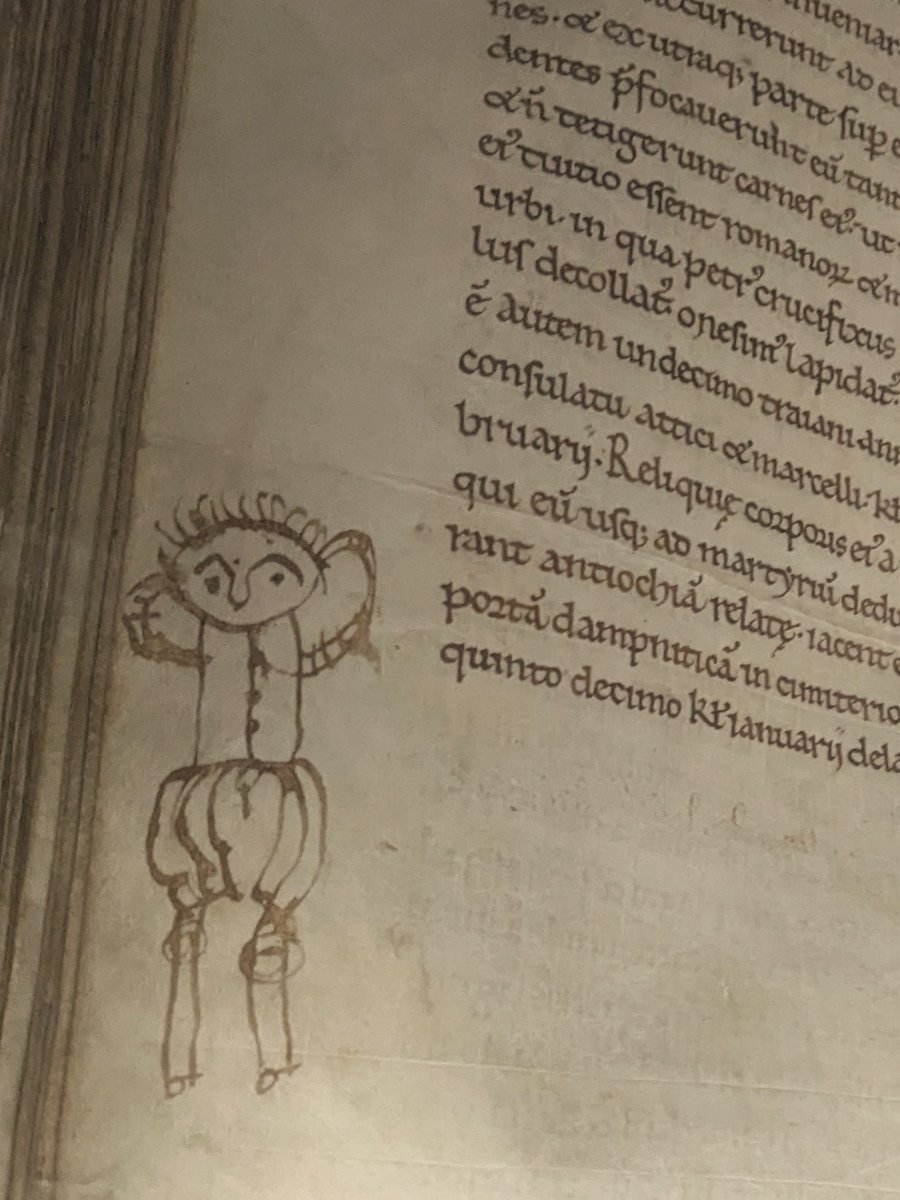 inueniar
occurrerunt ad eu
nes. & ex utraq; parte sup e
dentes p̃focauerunt eũ tant
& ñ tetigerunt carnes ei᾿. ut
ei᾿ tuitio essent romanoꝝ & m
urbi. in qua petr᾿ crucifixus
lus decollat᾿. onesim᾿ lapidat᾿.
ẽ autem undecimo traiani ann
consulatu attici & marcelli. kł
bruarij. Reliquię corporis ei᾿ a
qui eũ usq; ad martyriũ dedu
rant antiochiã relatę. iacent e
portã dampniticã in cimiterio
quinto decimo kł ianuarij dela